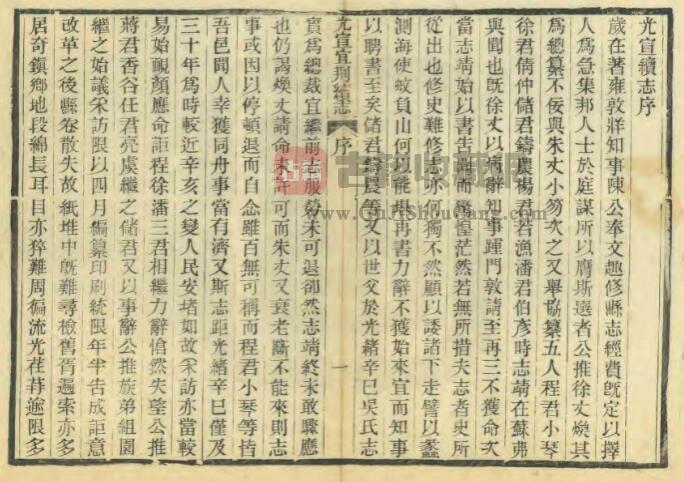 光宣續志序
歲在著雍敦牂知事陳公奉文趣修縣志經費既定以擇
人爲急集邦人士於庭謀所以膺斯選者公推徐丈煥其
爲總纂不佞與朱丈小芴次之又舉協纂五人程君小琴
徐君倩仲儲君鑄農楊君若漁潘君伯彥時志靖在蘇弗
與聞也既徐丈以病辭知事踵門敦請至再三不獲命次
當志靖始以書告聞而驚惶茫然若無所措夫志者史所
從出也修史難修志亦何獨不然顧以諉諸下走譬以蠡
測海使蚊負山何以能堪再書力辭不獲始來宜而知事
以聘書至矣儲君鑄農等又以世父於光緒辛巳吳氏志
光宣宜荆續志 序 一
實爲總裁宜繼前志服勞未可退卻然志靖終未敢驟應
也仍謁煥丈請命未許可而朱丈又衰老斷不能來則志
事或因以停頓退而自念雖百無可稱而程君小琴等皆
吾邑聞人幸獲同舟事當有濟又斯志距光緒辛巳僅及
三十年爲時較近辛亥之變人民安堵如故采訪亦當較
易始靦顏應命詎程徐潘三君相繼力辭愴然失望公推
蔣君香谷任君亮虞繼之儲君又以事辭公推族弟組園
繼之始議采訪限以四月編纂印刷統限年半告成詎意
改革之後縣卷散失故紙堆中既難尋檢舊胥遍索亦多
居奇鎮鄉地段綿長耳目亦猝難周徧流光荏苒逾限多
古籍收藏网
www.GuJiShouCang.com